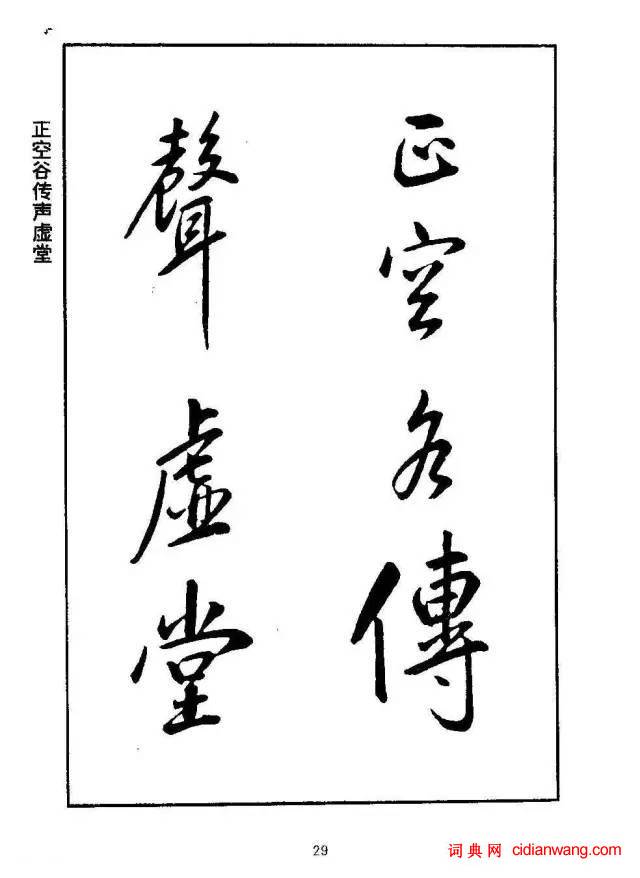 正空谷傳
聲虛堂
正空谷传声虚堂
29
词典网 cidianwang.com